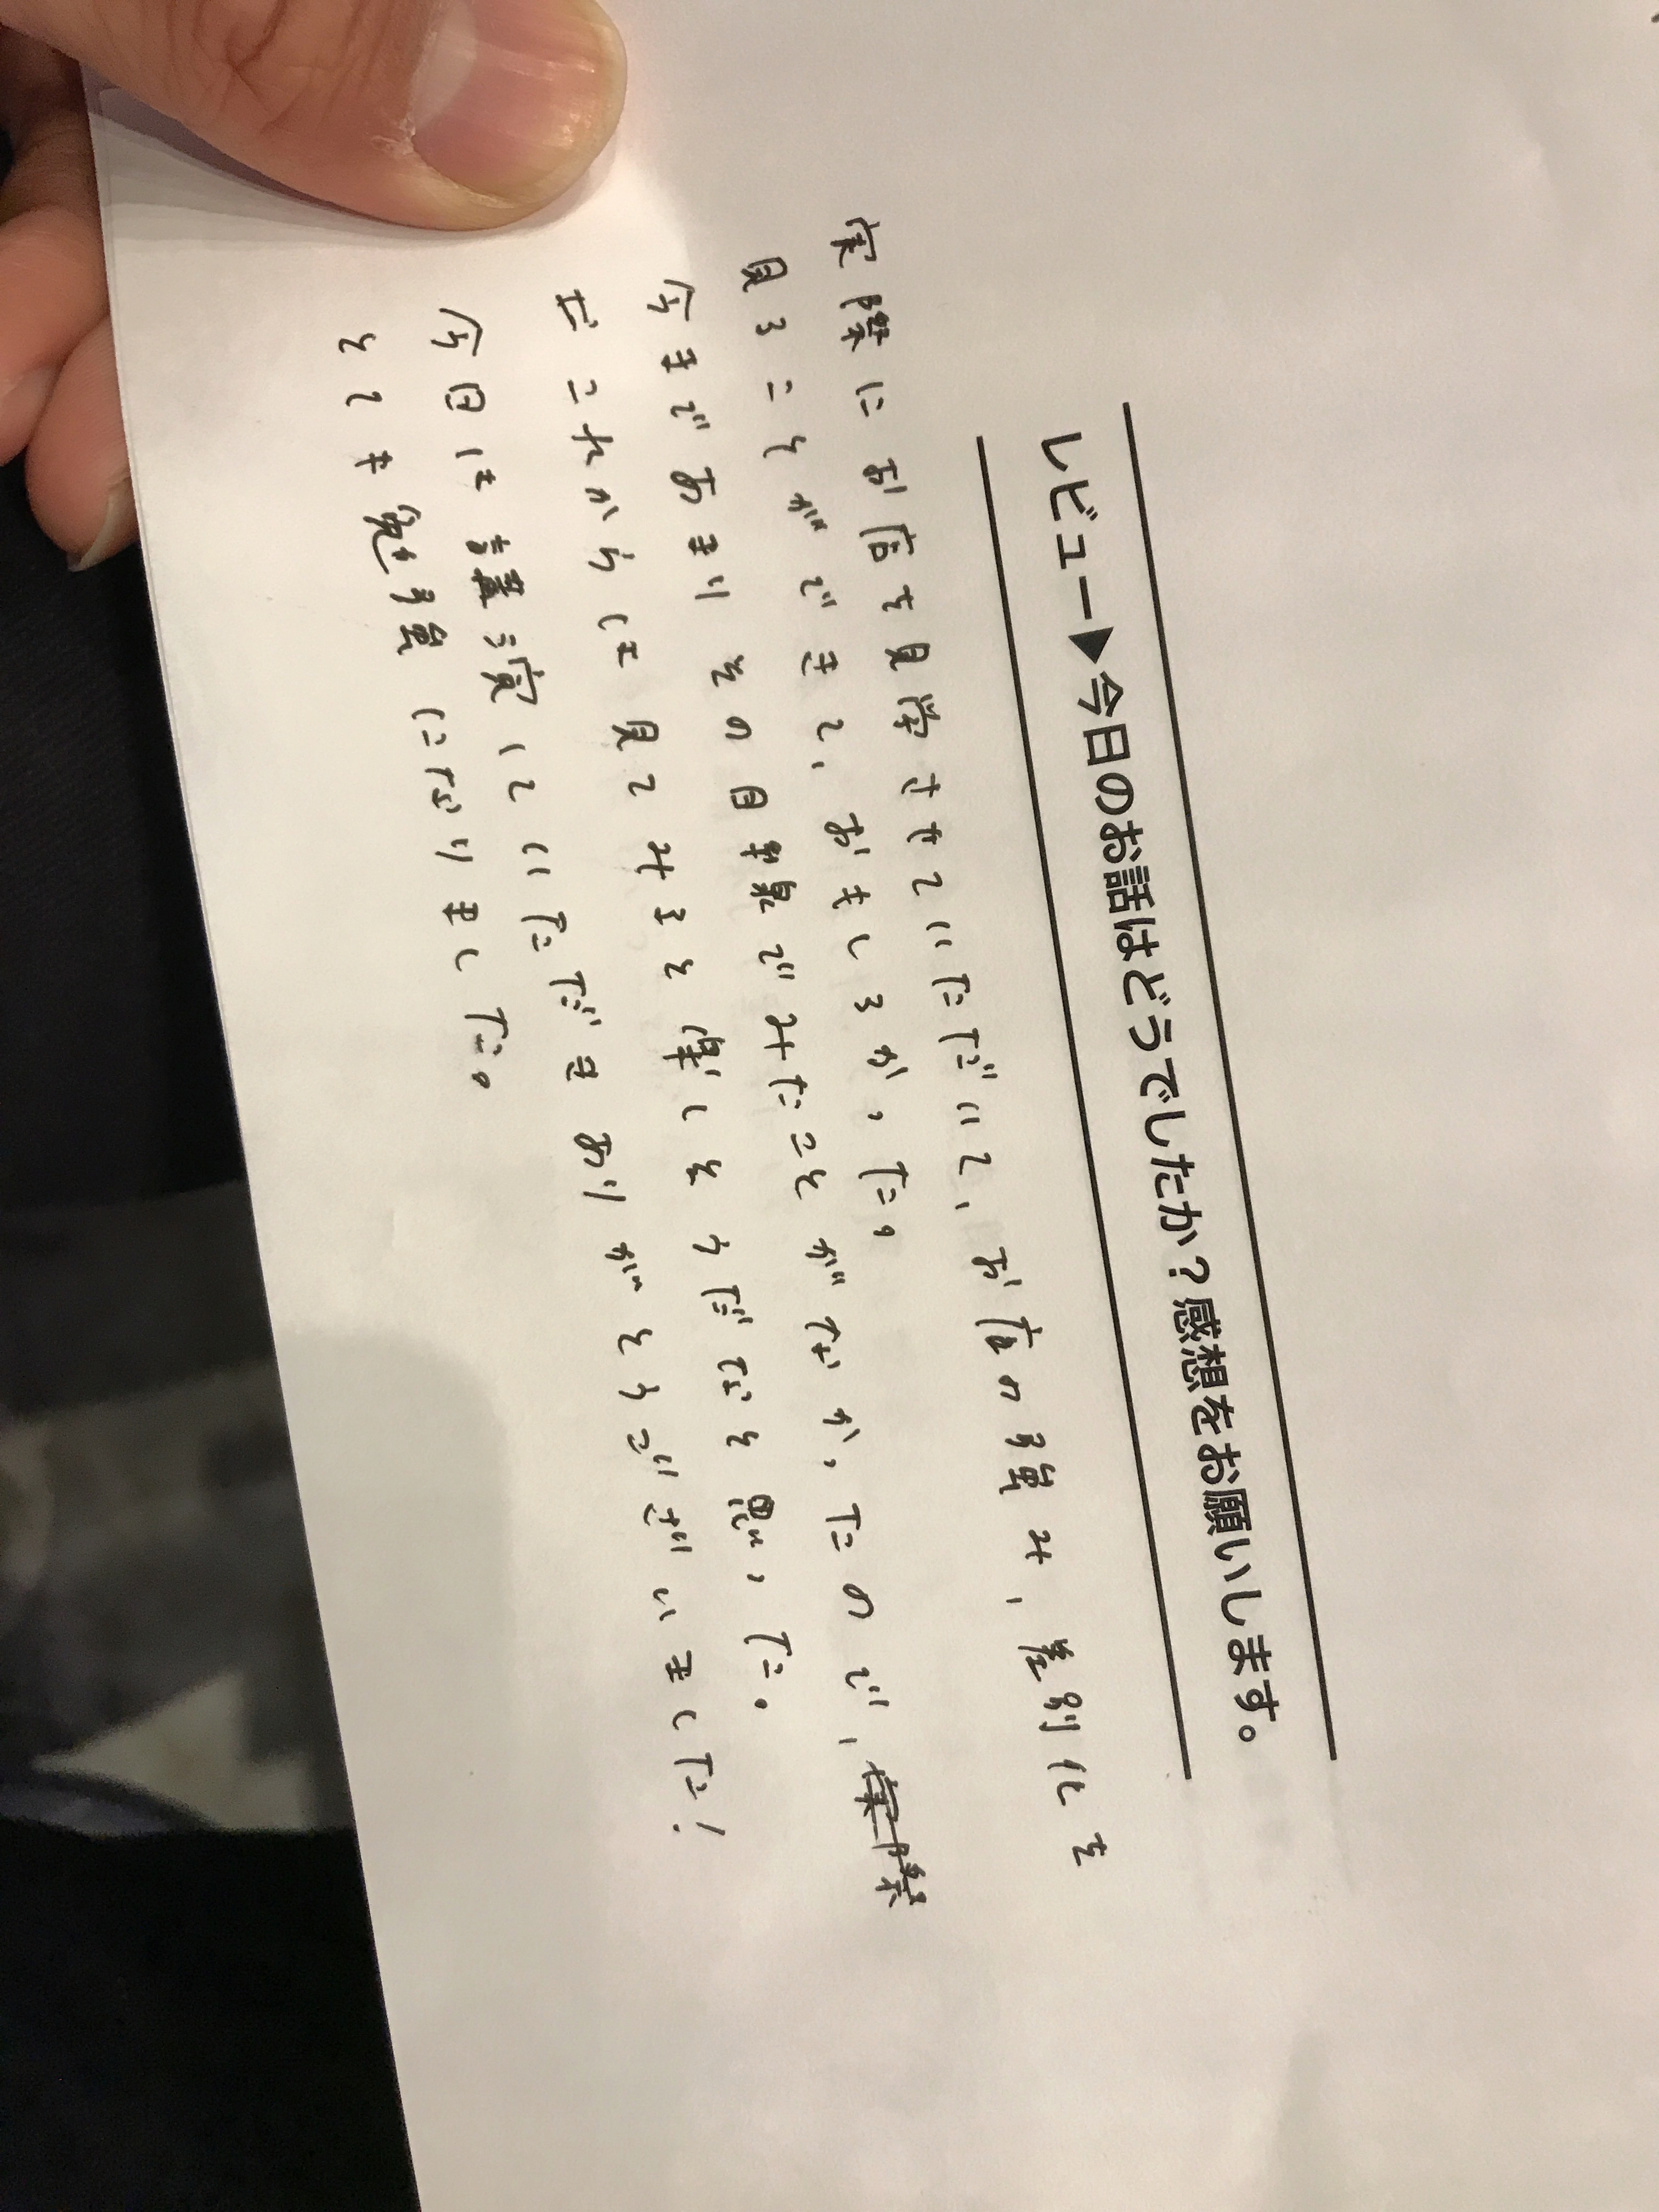 レビュー▶今日のお話はどうでしたか？感想をお願いします。
実際にお店を見学させていただいて、お店の強み、差別化を
見ることができて、おもしろかった。
今まであまりその目線でみたことがなかったので、実際
せこれからは見てみると楽しそうだなと思った。
今日は講演していただきありがとうございました！
とても勉強になりました。